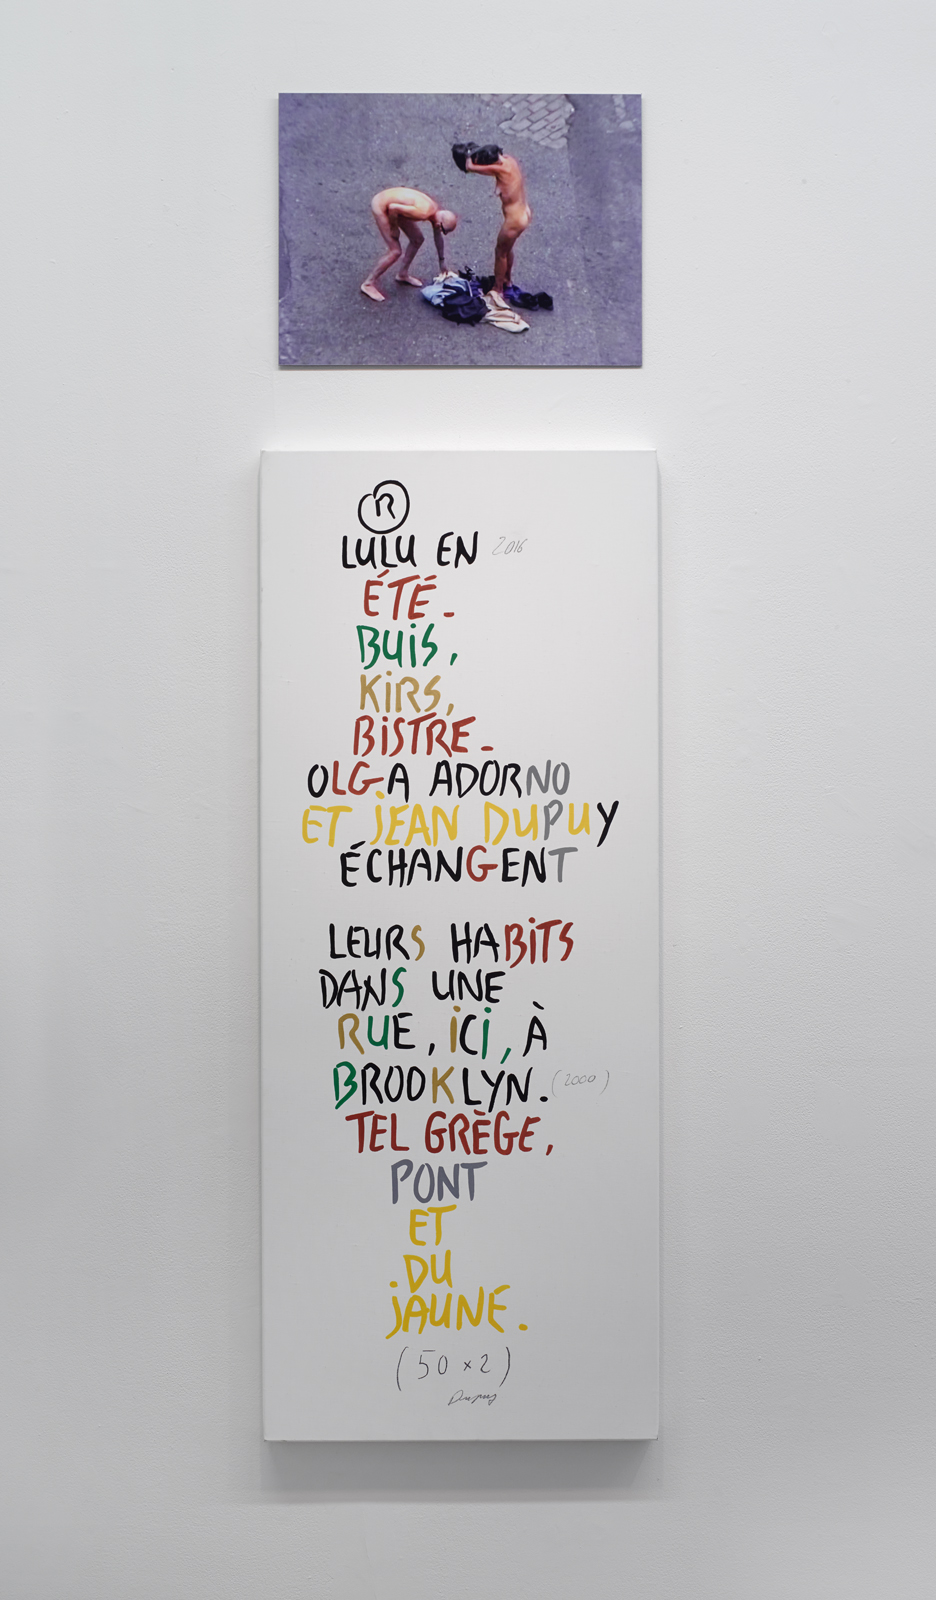 R
LULU EN 2016
ÉTÉ.
BUIS,
KIRS,
BISTRE.
OLGA ADORNO
ET JEAN DUPUY
ÉCHANGENT
LEURS HABITS
DANS UNE
RUE, ICI, À
BROOKLYN. (2000)
TEL GRÈGE,
PONT
ET
DU
JAUNE.
(50 × 2)
Dupuy